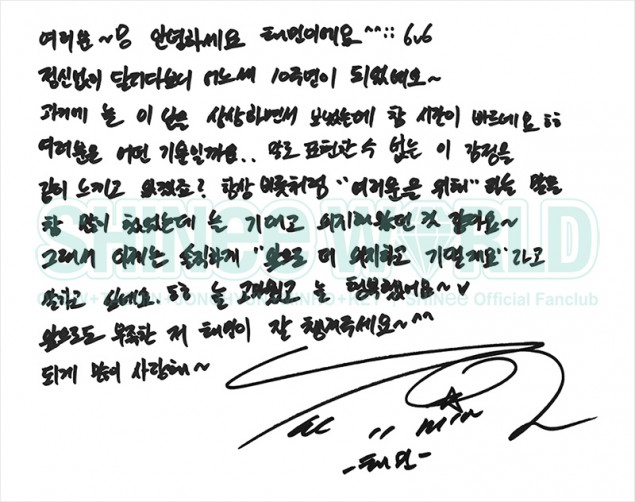 여러분~ 안녕하세요 태민이에요^^;; 6v6
정신없이 달리다보니 어느새 10주년이 되었네요~
과거에 늘 이 날을 상상하면서 보냈는데 참 시간이 빠르네요 ㅎㅎ
여러분은 어떤 기분일까요.. 말로 표현할 수 없는 이 감정을
같이 느끼고 있겠죠? 항상 버릇처럼 "여러분을 위해" 라는 말을
참 많이 했었는데 늘 기대고 의지해왔던 것 같아요~
그래서 이제는 솔직하게 "앞으로 더 의지하고 기댈게요"라고
말하고 싶네요 또 늘 고마웠고 늘 행복했어요~ ♥
앞으로도 부족한 저 태민이 잘 챙겨주세요~^^
되게 많이 사랑해~
SHINee WORLD
ONEW+TAEMIN+JONGHYUN+MINHO+KEY | SHINee Official Fanclub
Taemin
-태민-